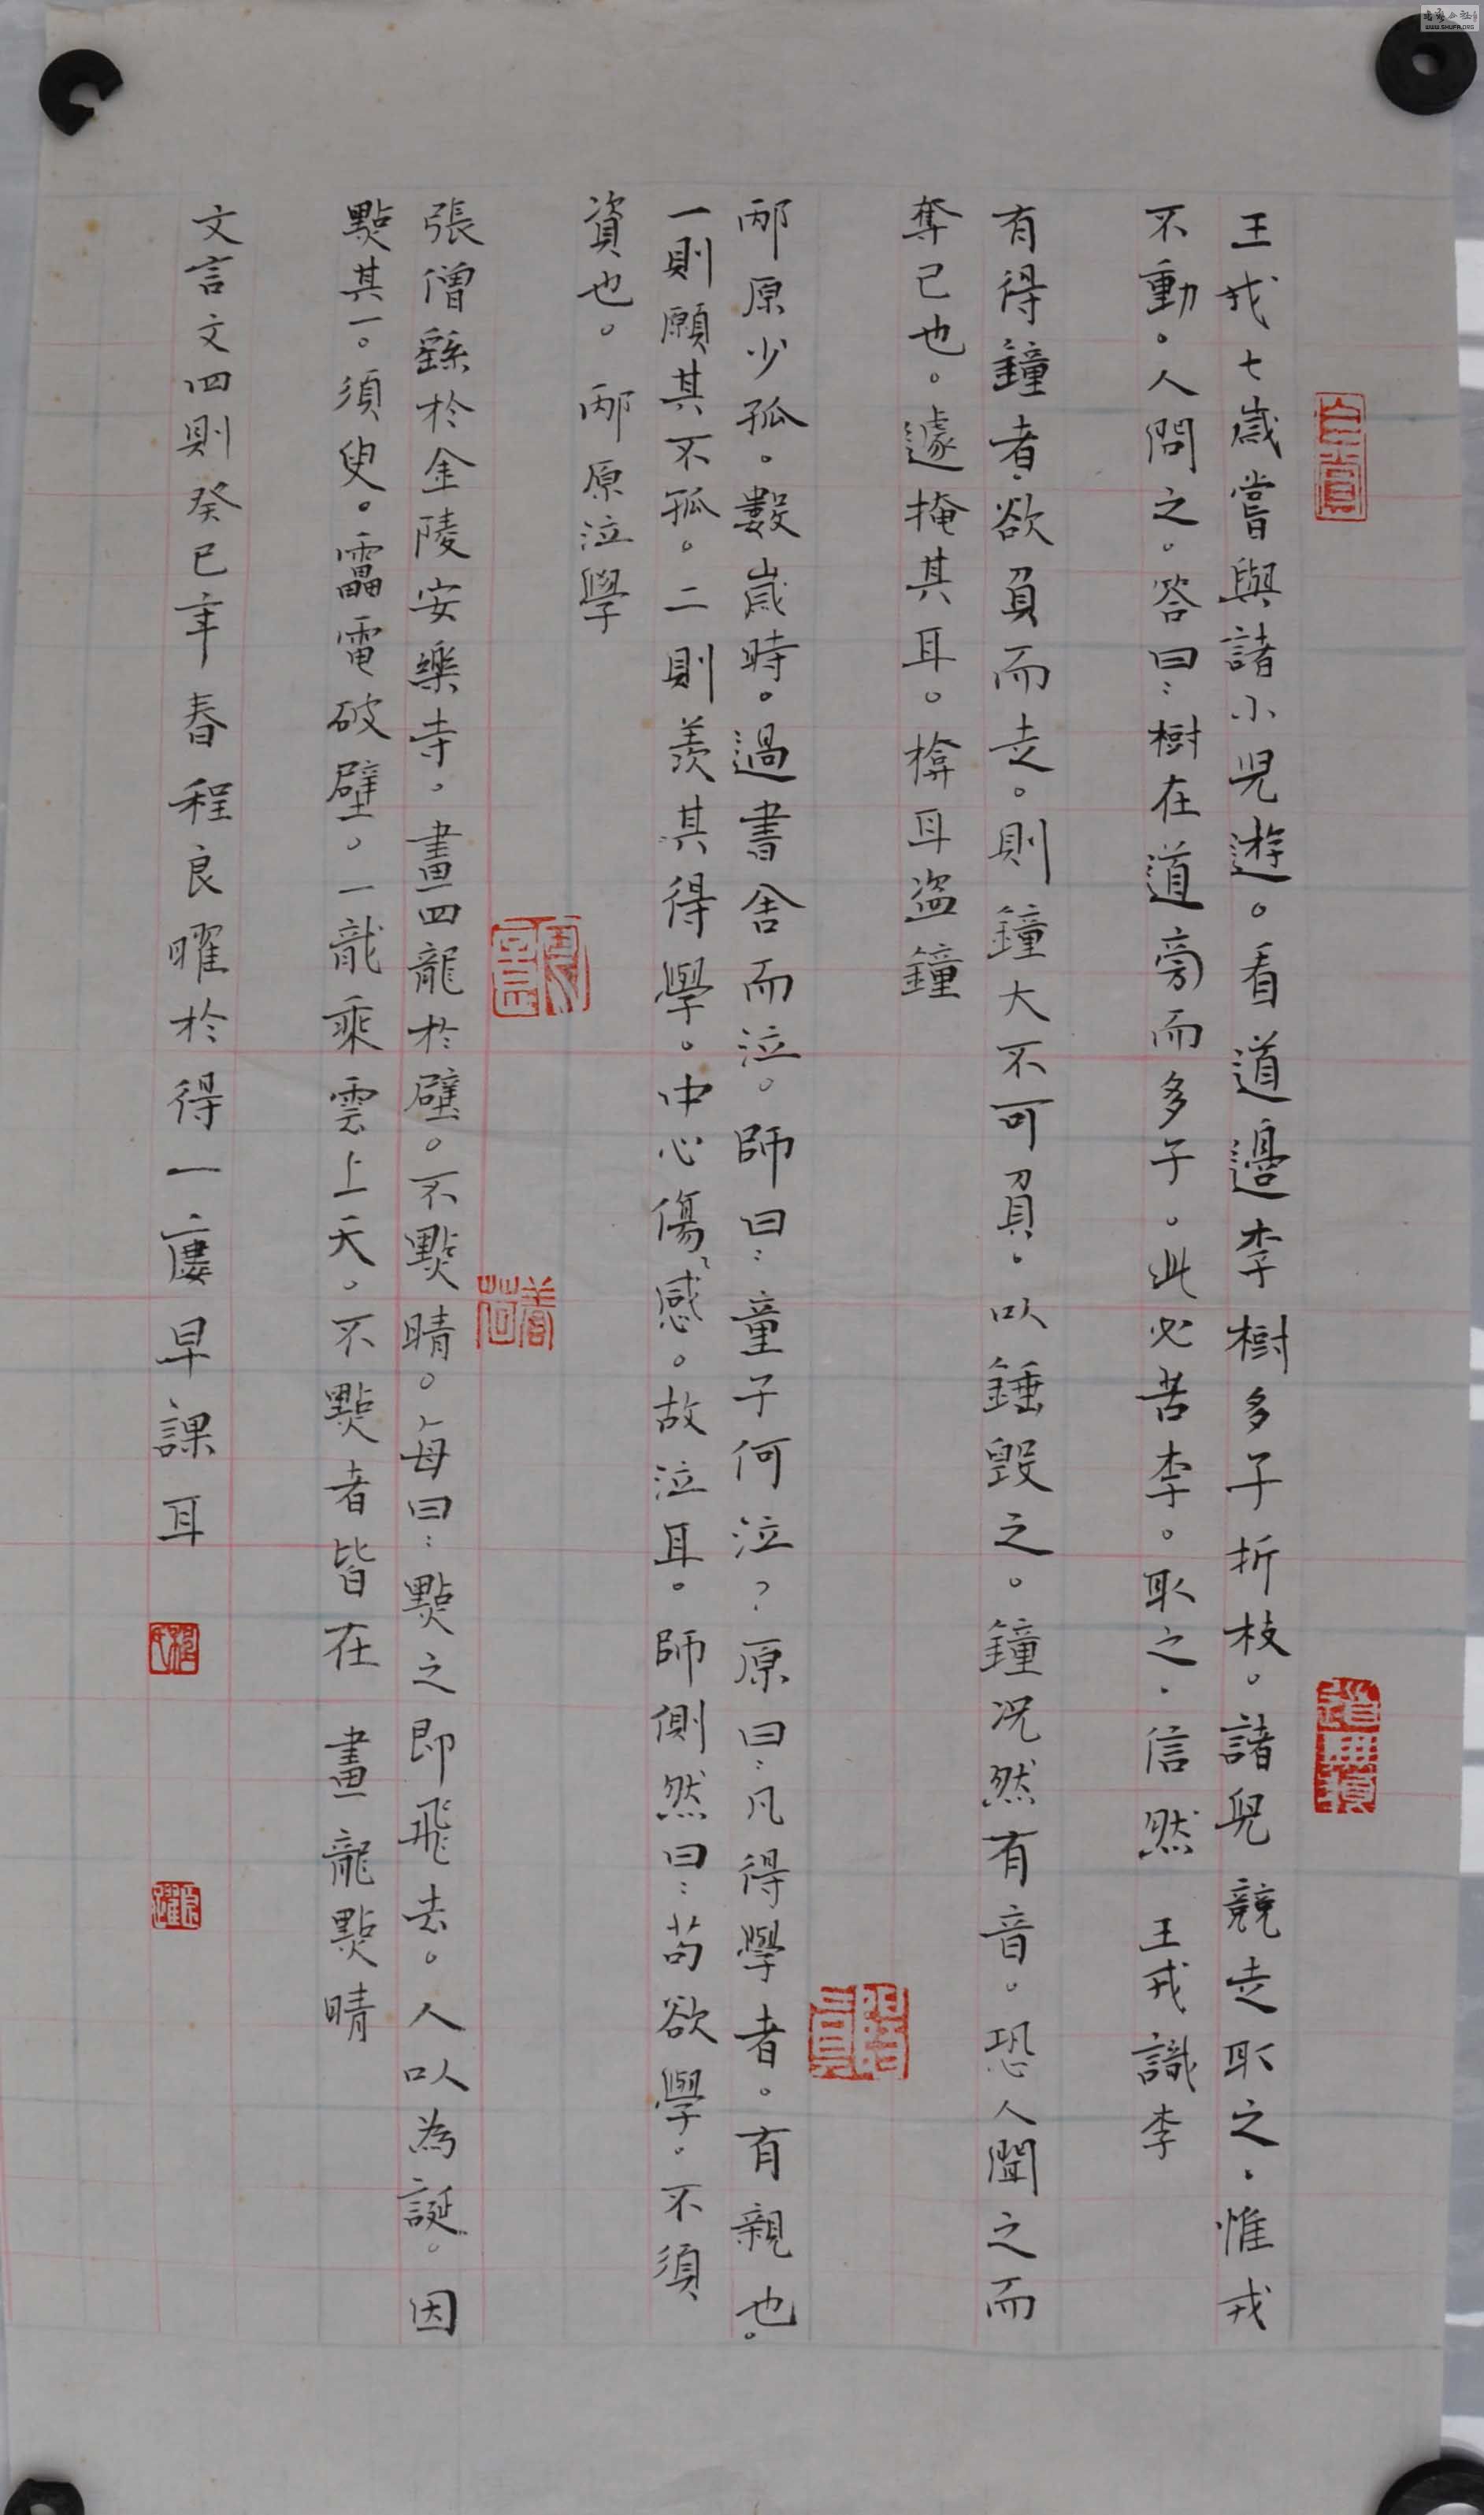 王戎七歲嘗與諸小兒遊。看道邊李樹多子折枝。諸兒競走取之．惟戎
不動。人問之。答曰：樹在道旁而多子。此必苦李。取之．信然 王戎識李
有得鐘者．欲負而走。則鐘大不可負．以錘毀之。鐘況然有音。恐人聞之而
奪己也。遽掩其耳。揜耳盜鐘
邴原少孤。數歲時。過書舍而泣。師曰：童子何泣？原曰：凡得學者。有親也。
一則願其不孤。二則羨其得學。中心傷感。故泣耳。師惻然曰：苟欲學．不須
資也。 邴原泣學
張僧繇於金陵安樂寺．畫四龍於壁。不點睛。每曰：點之即飛去。人以為誕。因
點其一。須臾。雷電破壁。一龍乘雲上天。不點者皆在 畫龍點睛
文言文四則癸巳年春程良曜於得一廔早課耳
WWW.SHUFA.ORG